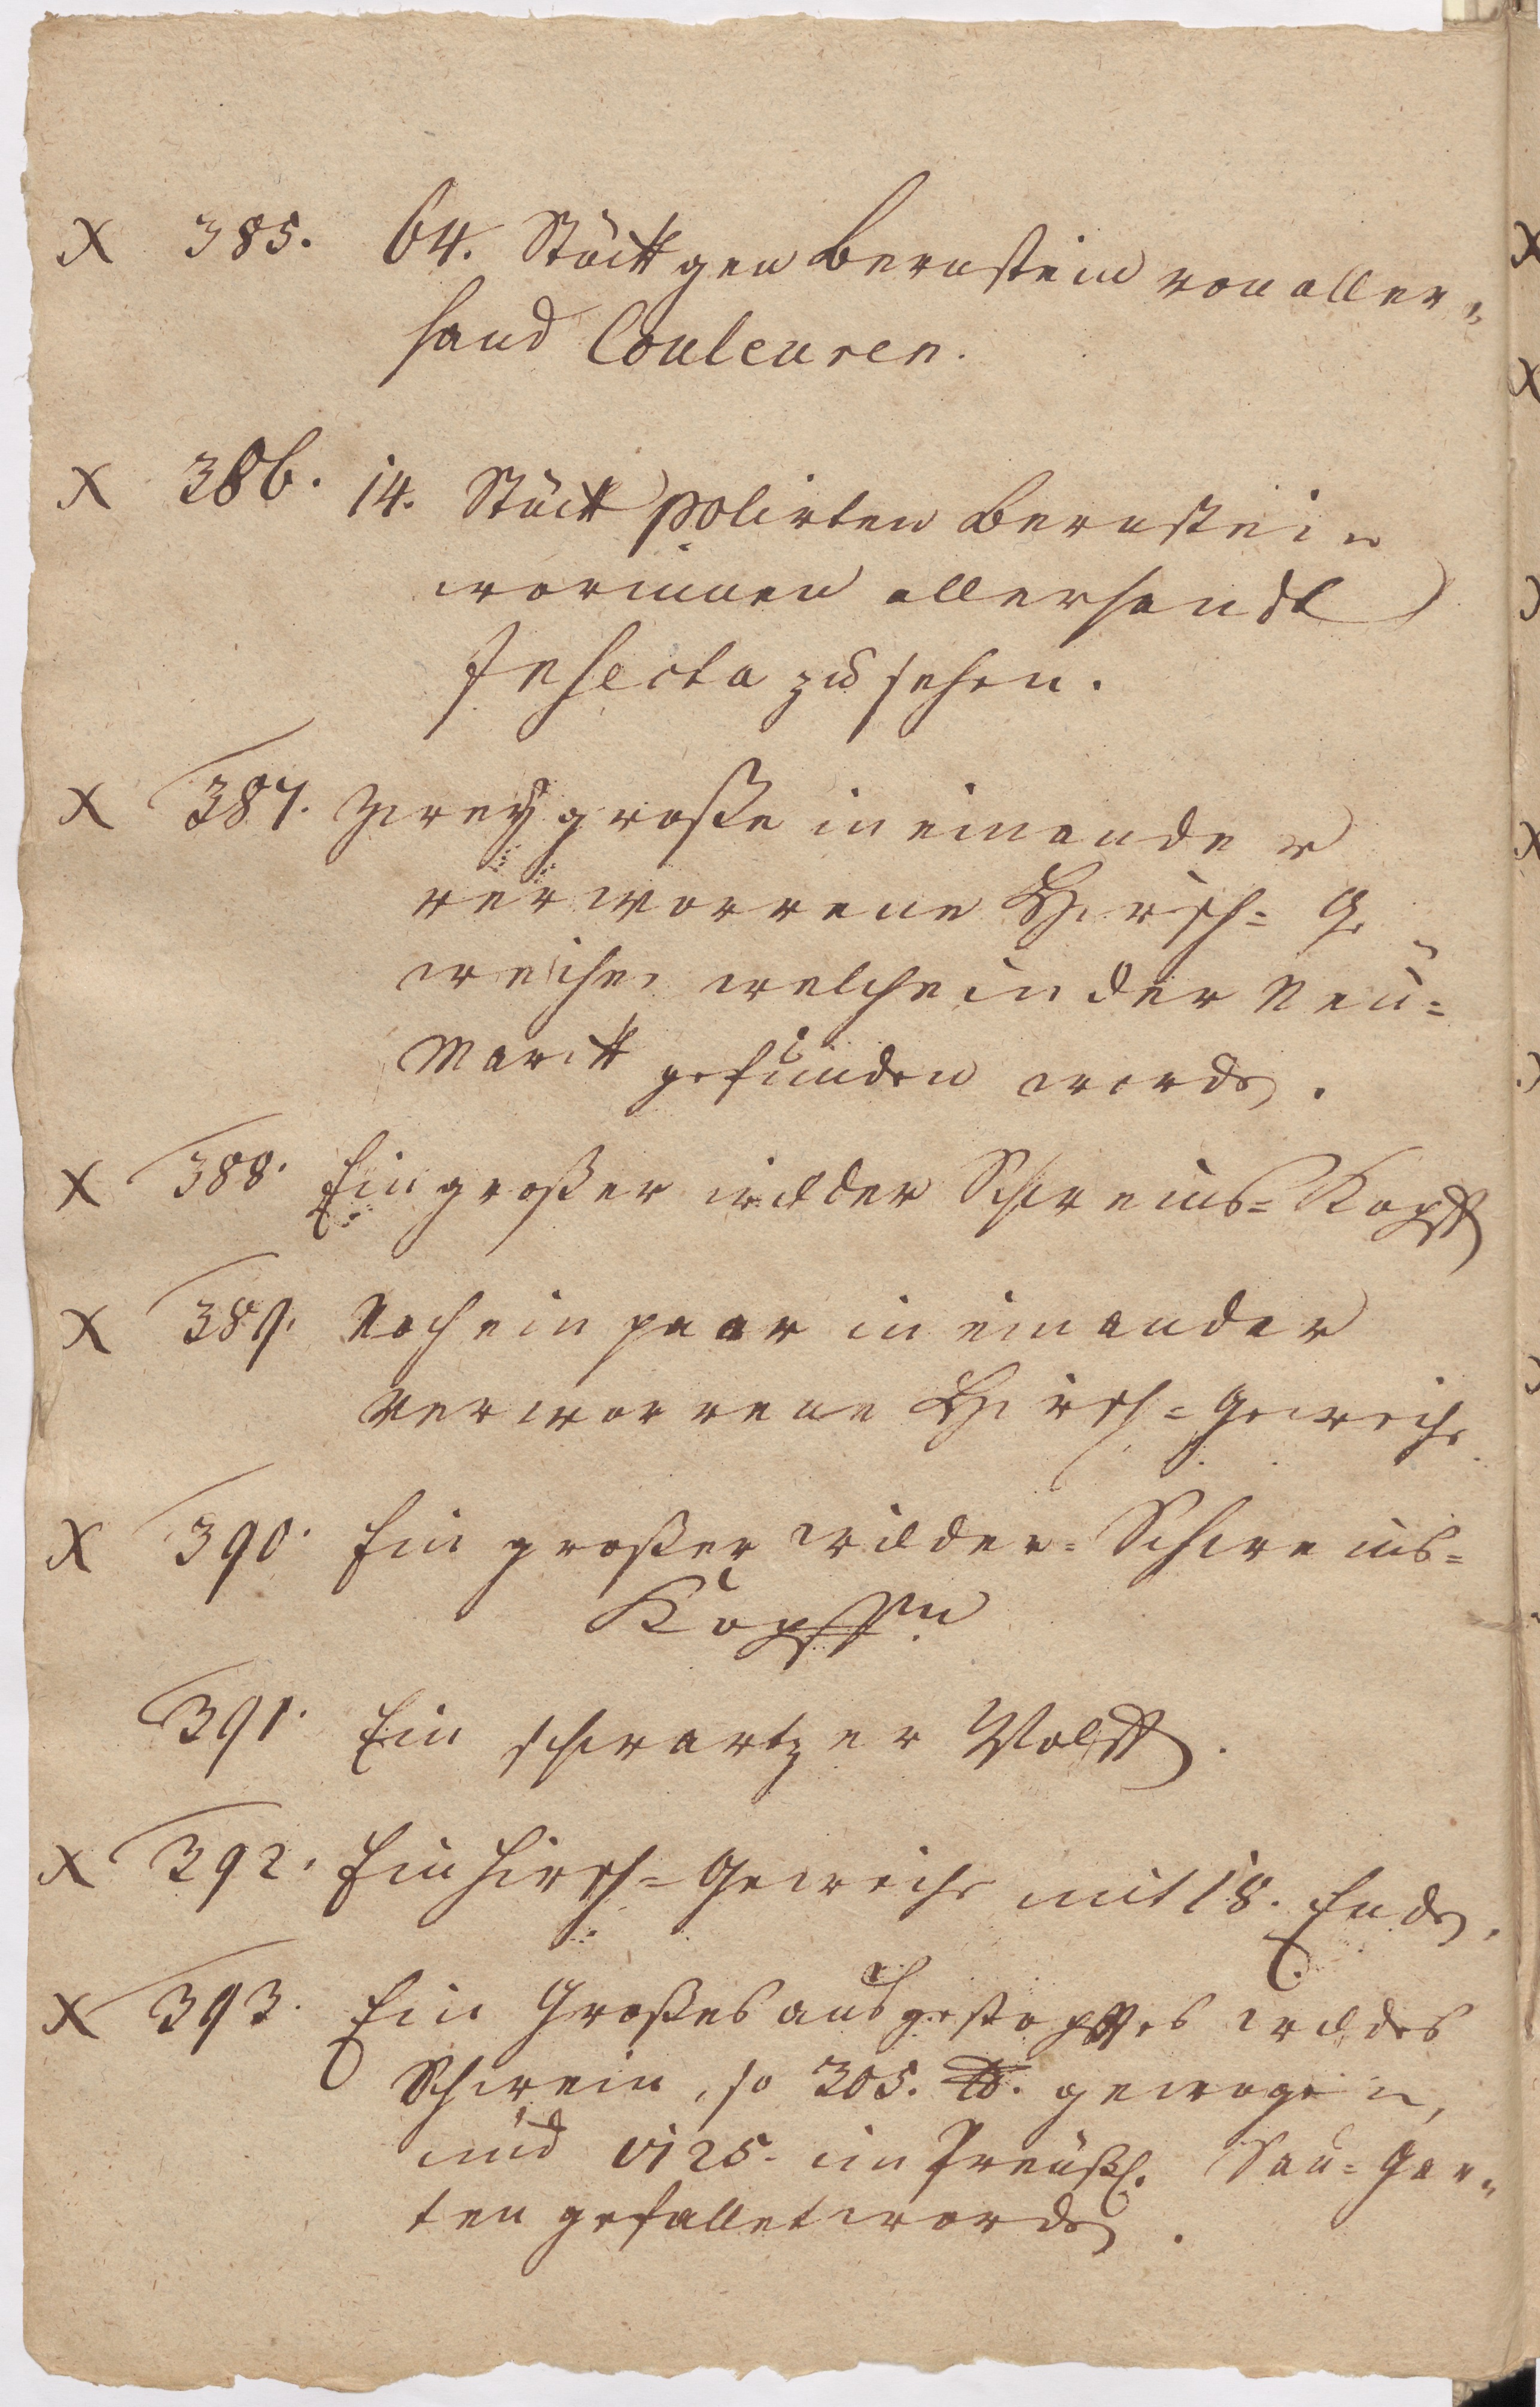 X 385. 64. Stückgen Bernstein von aller„
hand Couleuren.
X 386. 14. Stück polirten Bernstein
worinnen allerhandt
Insecta zu sehen.
X 387. Zwey große in einander
verworrene Hirsch= Ge
weihe, welche in der Neu=
Marck gefunden worden.
X 388. Ein großer wilder Schweins=Kopff
X 389. Noch ein paar in einander
verworrene Hirsch=Geweihe
X 390. Ein großer wilder= Schweins=
Kopff
391. Ein schwartzer Wolff.
X 392. Ein Hirsch=Geweihe mit 18. Enden.
X 393. Ein Großes ausgestopfftes wildes
Schwein, so 305. ℔. gewogen,
und im Preußs. Sau=Gar„
ten gefallet worden.